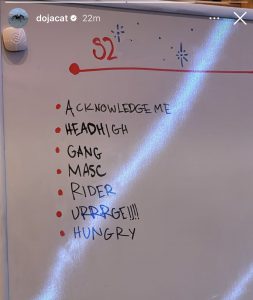 dojacat 22m
S2
ACKNOWLEDGE ME
HEADHIGH
GANG
MASC
RIDER
URRRGE!!!!
HUNGRY